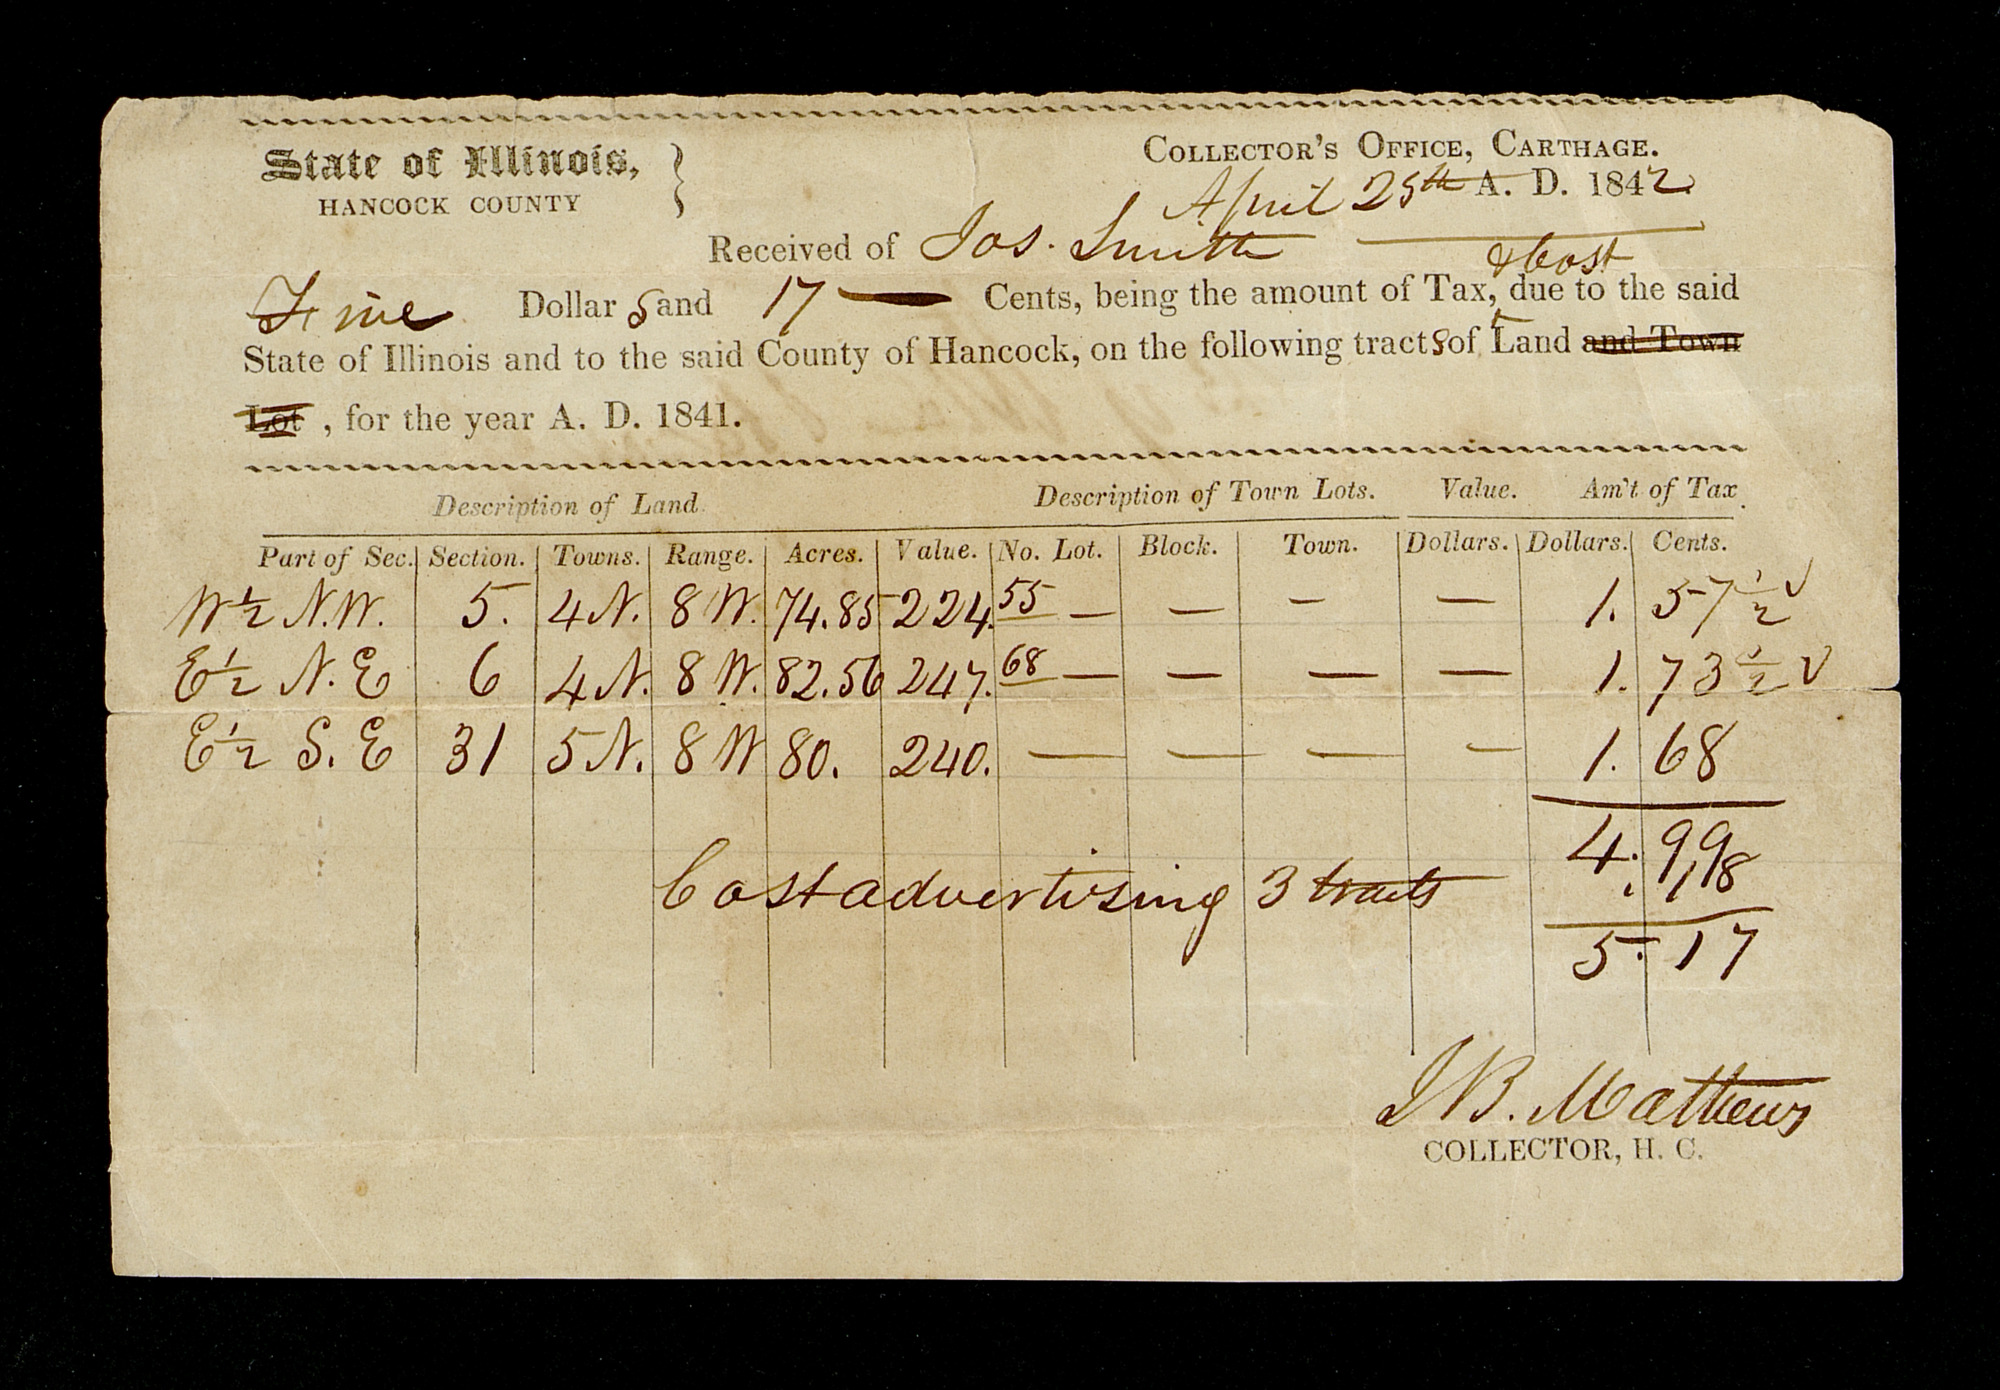 State of Illinois, }
HANCOCK COUNTY
COLLECTOR'S OFFICE, CARTHAGE.
April 25th A. D. 1842.
Received of Jos. Smith
& Cost
Five Dollars and 17 — Cents, being the amount of Tax, due to the said
State of Illinois and to the said County of Hancock, on the following tracts of Land and Town
Lot , for the year A. D. 1841.
Description of Land. Description of Town Lots. Value. Am't of Tax.
Part of Sec. Section. Towns. Range. Acres. Value. No. Lot. Block. Town. Dollars. Dollars. Cents.
W ½ N.W. 5. 4 N. 8 W. 74.85 224.55 — — — — 1. 57 ½ √
E ½ N. E 6 4 N. 8 W. 82.56 247.68 — — — — 1. 73 ½ √
E ½ S. E 31 5 N. 8 W 80. 240. — — — — 1. 68
4. 99
Cost advertising 3 tracts . 18
5. 17
J B. Mathews
COLLECTOR, H. C.